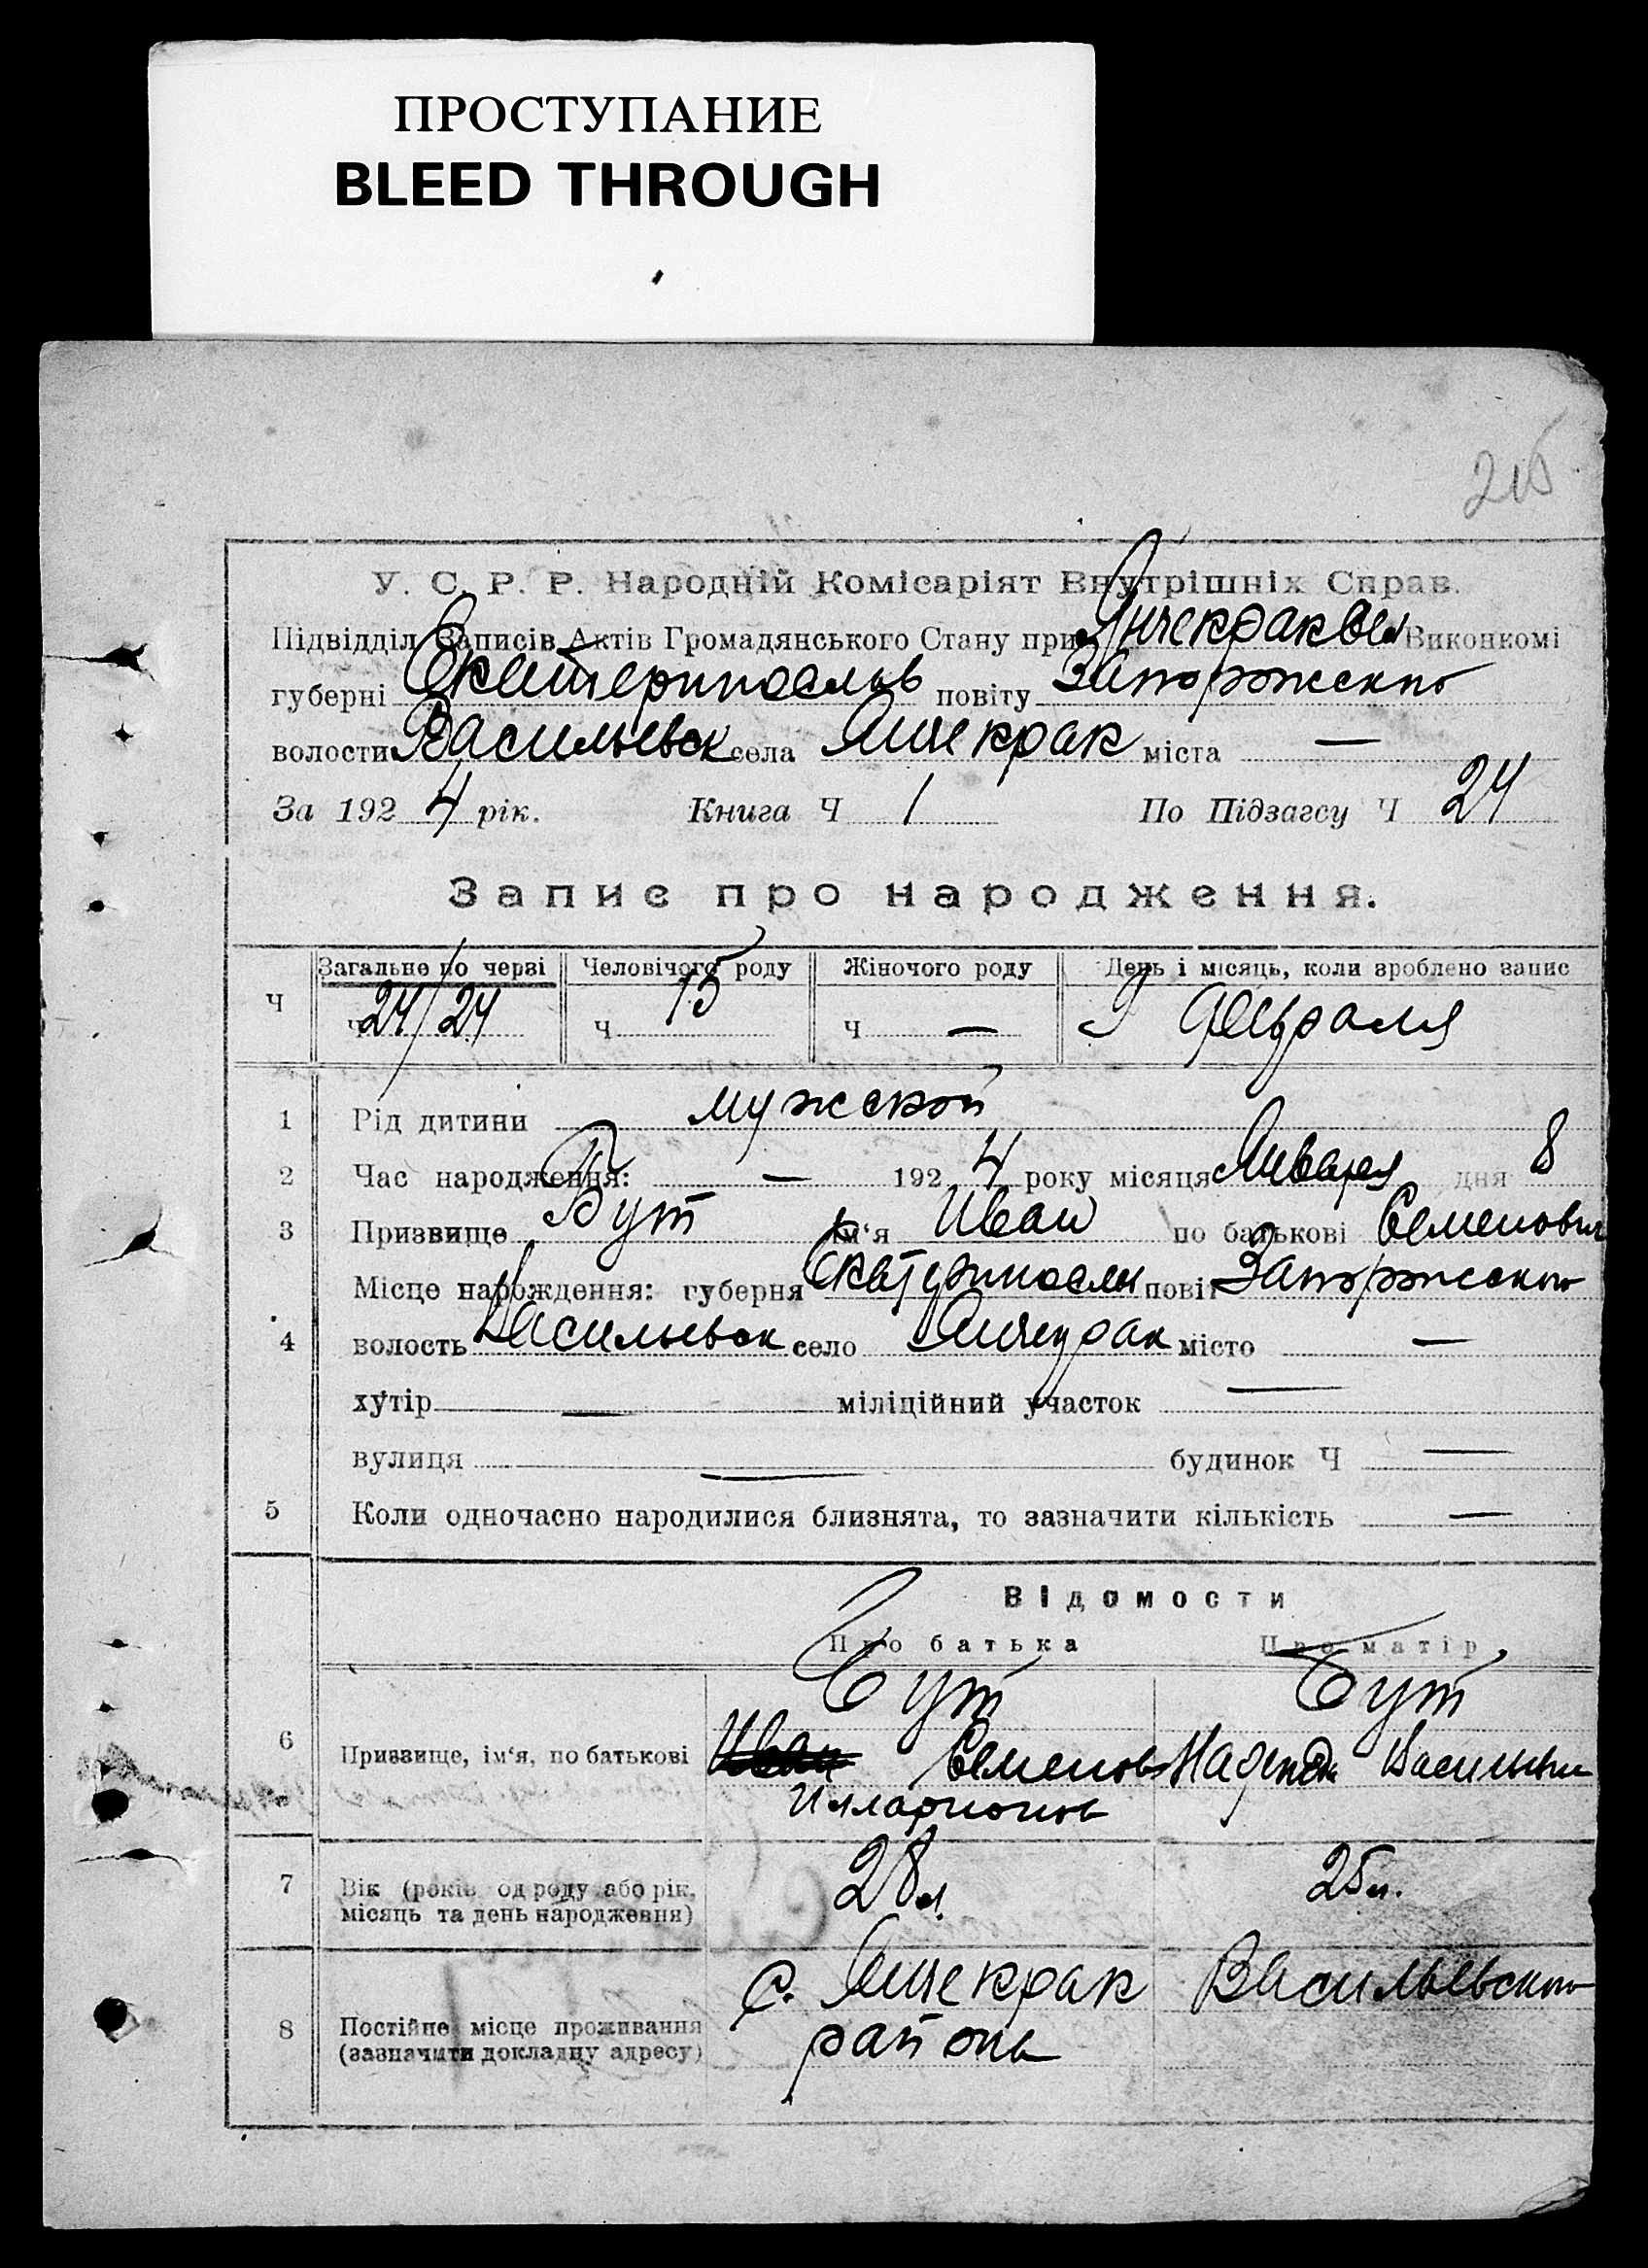 ПРОСТУПАНИЕ
BLEED THROUGH
215
У. С. Р. Р. Народній Комісаріят Внутрішніх Справ.
Підвідділ Записів Актів Громадянського Стану при Янчекраквол Виконкомі
губерні Екатеринослав повіту Запорожского
волости Васильевск села Янчекрак міста —
За 1924 рік. Книга Ч 1 По Підзагсу Ч 24
Запис про народження.
Загальне по черзі Человічого роду Жіночого роду День і місяць, коли зроблено запис
Ч Ч 24/24 Ч 15 Ч — 9 Февраля
1 Рід дитини мужской
2 Час народження: — 1924 року місяця Января дня 8
3 Призвище Бут Ім'я Иван по батькові Семенович
Місце нарождення: губерня Екатеринослав повіт Запорожского
4 волость Васильевск село Янчекрак місто —
хутір — міліційний участок —
вулиця — будинок Ч —
5 Коли одночасно народилися близнята, то зазначити кількість —
Відомости
Про батька Про матір
Бут Бут
6 Призвище, ім'я, по батькові Иван Семенов Надежда Васильевн
Илларионов
7 Вік (років од роду або рік, 28 л. 25 л.
місяць та день народження)
8 Постійне місце проживання с. Янчекрак Васильевского
(зазначити докладну адресу) района